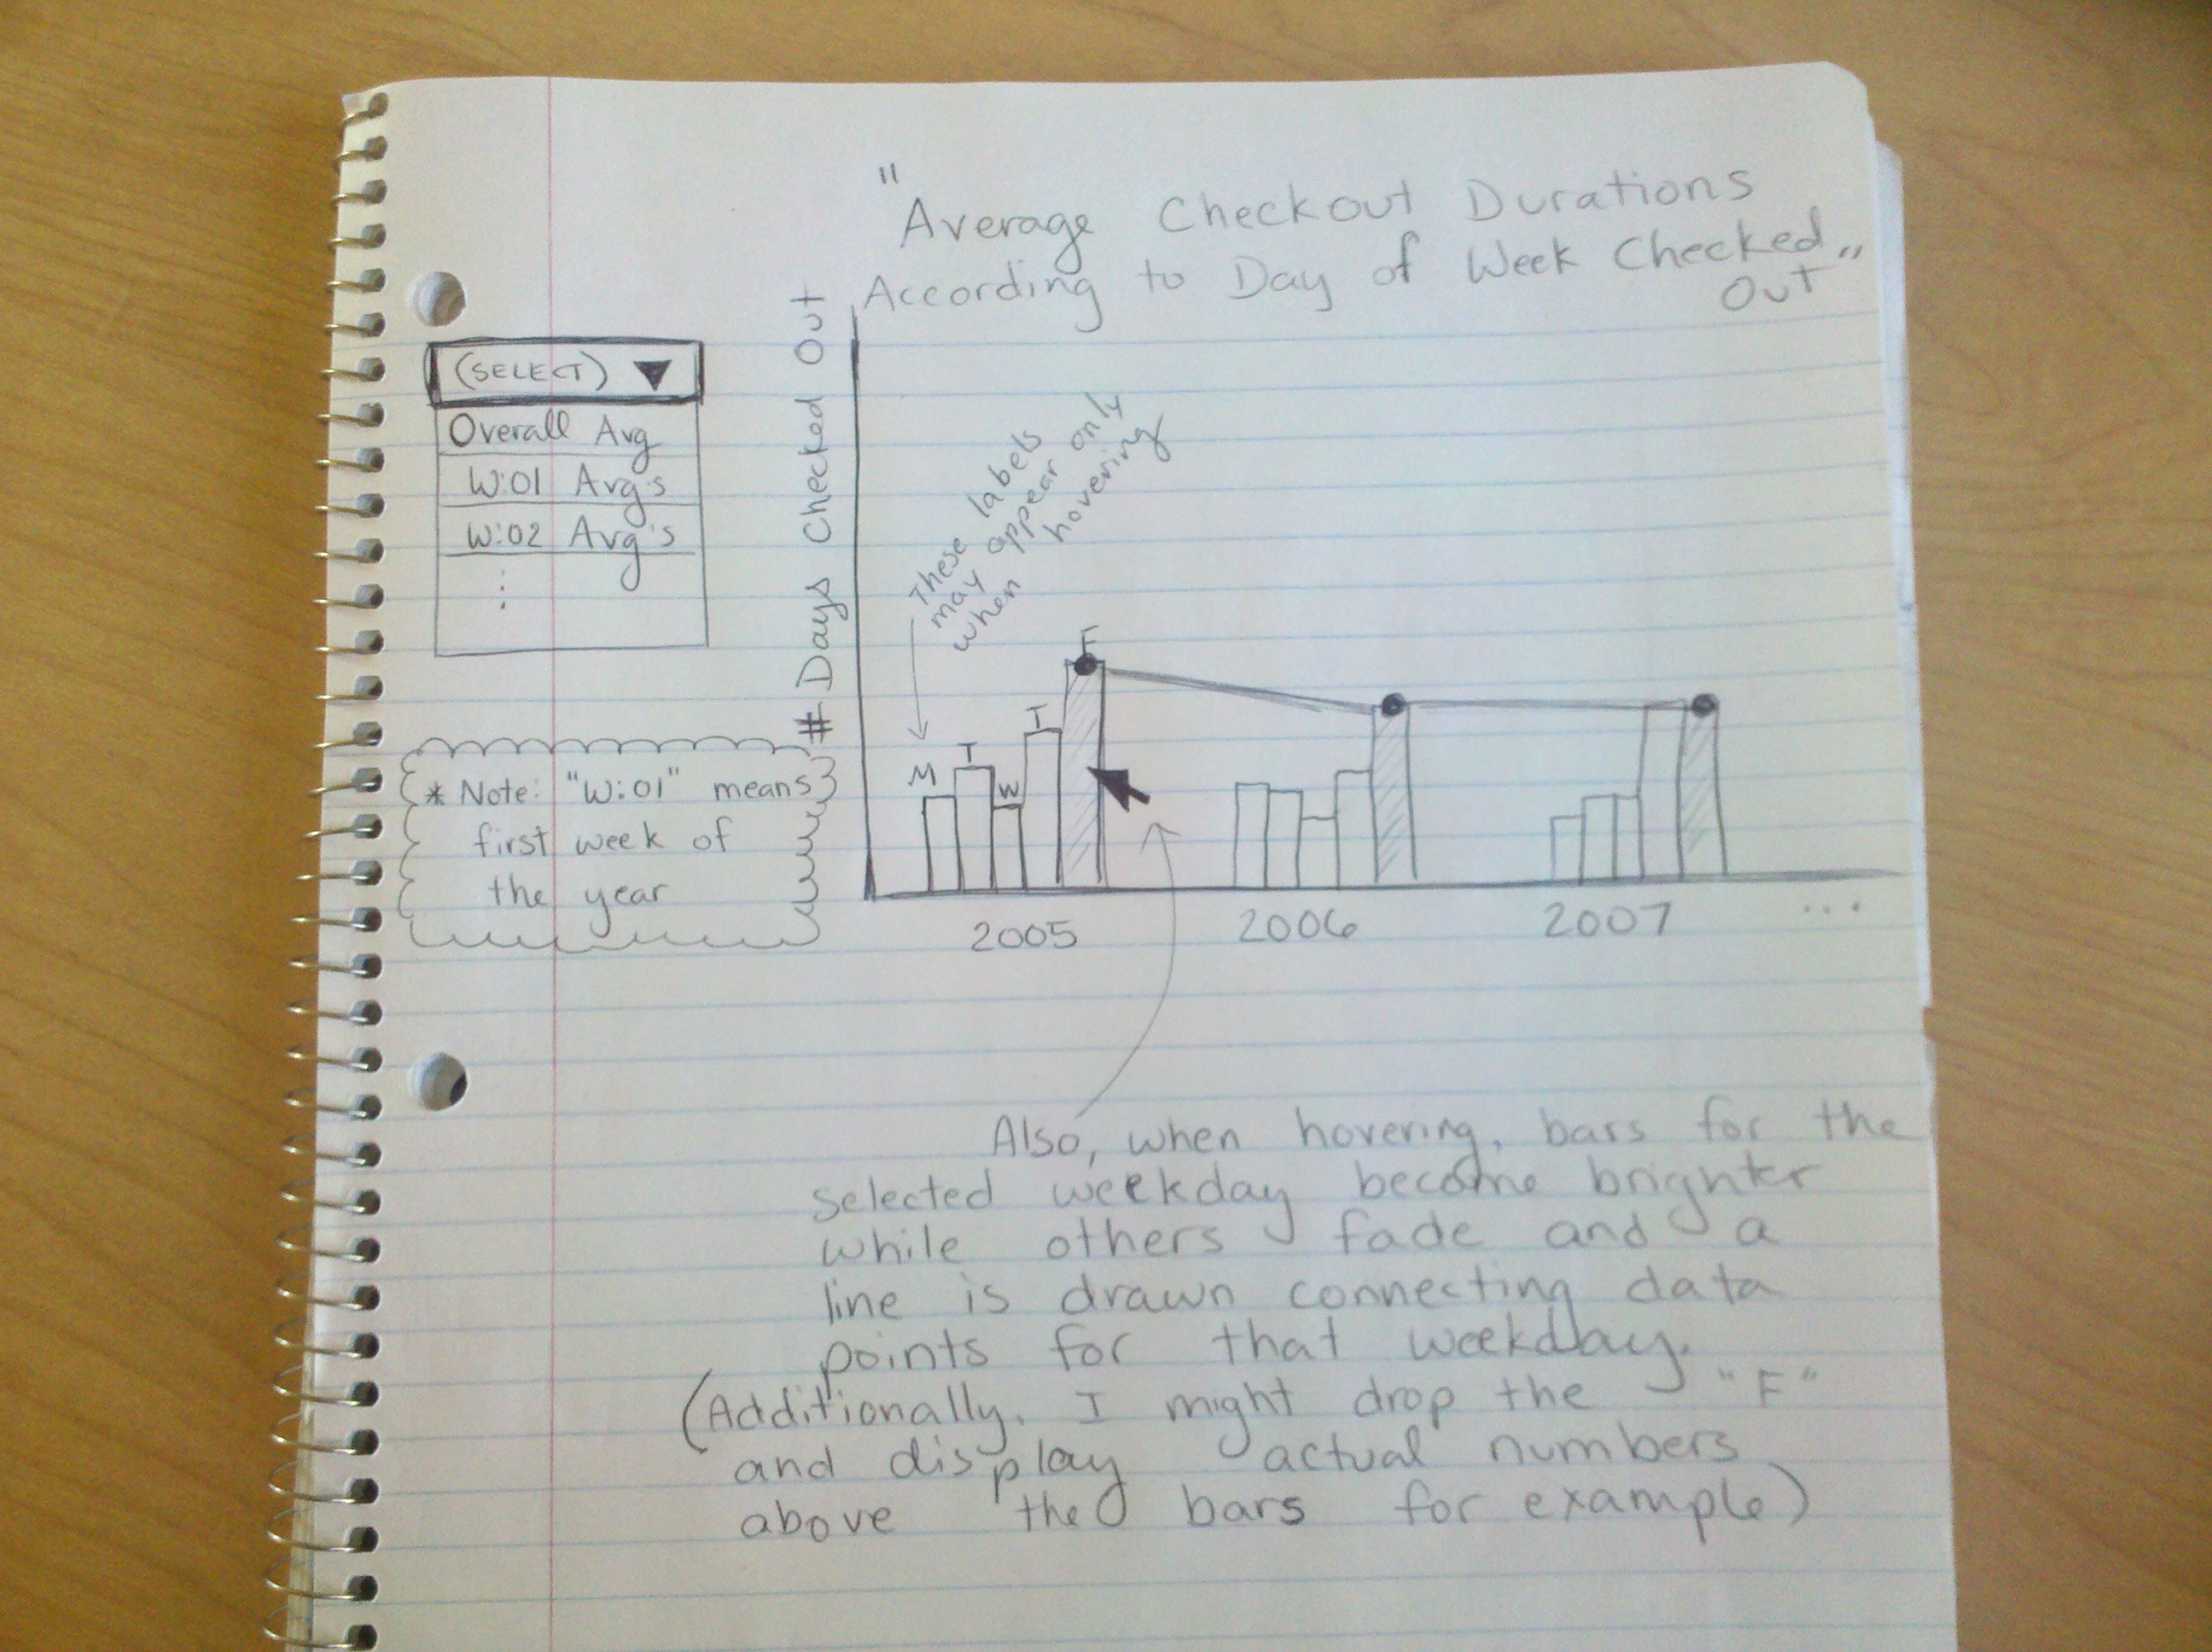 "Average Checkout Durations
According to Day of Week Checked
Out"
(SELECT)
Overall Avg
W:01 Avg's
W:02 Avg's
# Days Checked Out
These labels
may appear only
when hovering
M
T
W
T
F
2005
2006
2007
...
* Note: "W:01" means
first week of
the year
Also, when hovering, bars for the
selected weekday become brighter
while others fade and a
line is drawn connecting data
points for that weekday.
(Additionally, I might drop the "F"
and display actual numbers
above the bars for example)